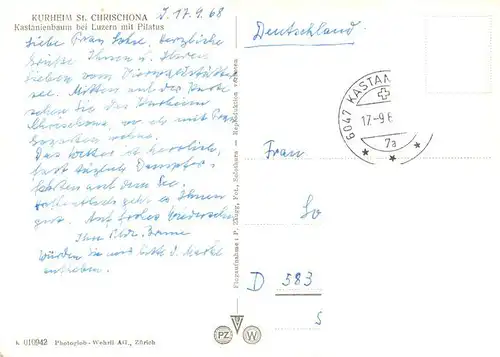 KURHEIM St. CHRISCHONA
Kastanienbaum bei Luzern mit Pilatus
17.9.68
Liebe Frau herzliche
Grüße Ihnen u. Ihren
Lieben vom Vierwaldstätter
see. Mitten auf der Karte
sehen Sie das Kurheim
Chrischona, wo ich mit
wohne.
Das Wetter ist herrlich,
fast täglich Dampfer-
fahrten auf dem See.
Hoffentlich geht es Ihnen
gut. Auf frohes Wiedersehen
Ihre
Würden Sie mir bitte d. Marke
aufheben.
k 010942 Photoglob-Wehrli AG., Zürich
Flugaufnahme: P. Zaugg, Fot., Solothurn - Reproduktion verboten
PZ W
Deutschland.
6047 KASTAN
17-9.6
7a
Frau
D 583
S